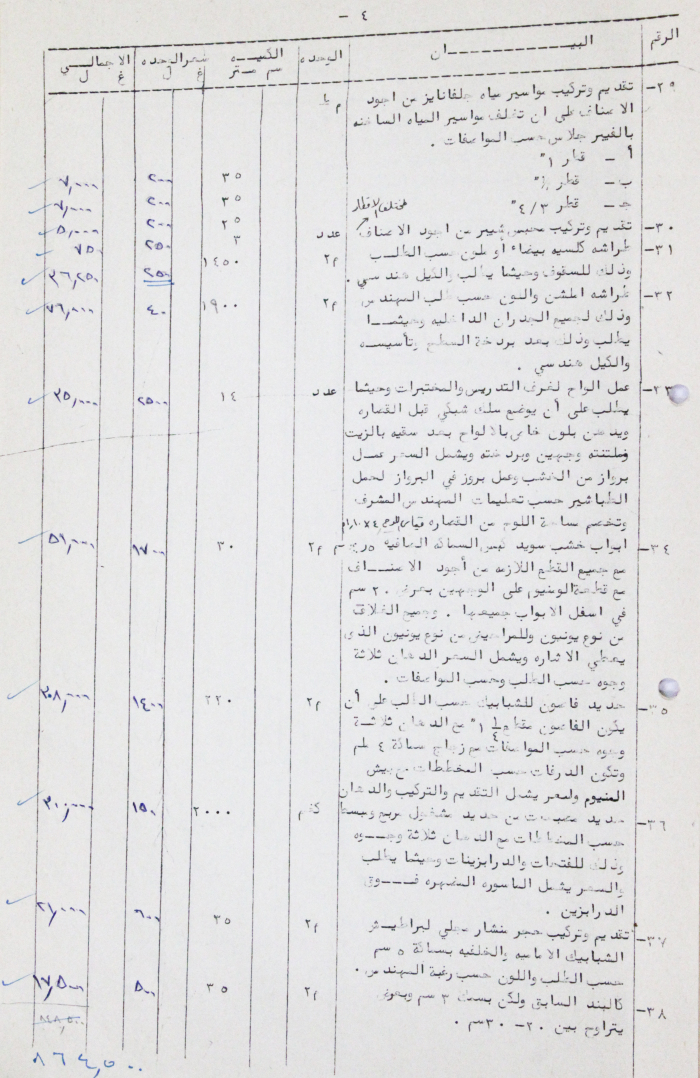 - ٤
الرقم البيــــــــان الوحده الكميــــه سعر الوحده الاجمالــــي
سم متر غ ل غ ل
٢٩- تقديم وتركيب مواسير مياه جلفانايز من اجود م ط
الاصناف على ان تغلف مواسير المياه الساخنه
بالفيبر جلاس حسب المواصفات .
أ - قطر ١" ٣٥ ٢٠٠ ٧,٠٠٠
ب- قطر ٣٥ ٢٠٠ ٧,٠٠٠
ج- قطر ٣/٤" ٢٥ ٢٠٠ ٥,٠٠٠
لمختلف الاقطار
٣٠- تقديم وتركيب محبس شيبر من اجود الاصناف عدد ٣ ٢٥٠ ٧٥٠
٣١- طراشه كلسيه بيضاء أو ملون حسب الطلــب م٢ ١٤٥٠ ٢٥٠ ٣٦,٢٥٠
وذلك للسقوف وحيثما يطلب والكيل هندسي .
٣٢- طراشه املشن واللون حسب طلب المهندس م٢ ١٩٠٠ ٤٠ ٧٦,٠٠٠
وذلك لجميع الجدران الداخليه وحيثمــا
يطلب وذلك بعد بردخة السطح وتأسيســه
والكيل هندسي .
٣٣- عمل الواح لغرف التدريس والمختبرات وحيثما عدد ١٤ ٢٥٠٠ ٣٥,٠٠٠
يطلب على أن يوضع سلك شبكي قبل القصاره
ويدهن بلون خاص بالالواح بعد سقيه بالزيت
وملتنته وجهين وبردخته ويشمل السعر عمــل
برواز من الخشب وعمل بروز في البرواز لحمل
الطباشير حسب تعليمات المهندس المشرف
وتخصم ساحة اللوح من القصاره قياس اللوح
٣٤- ابواب خشب سويد كبس السماكه الصافيه م٢ ٣٠ ١٧٠٠ ٥١,٠٠٠
مع جميع القطع اللازمه من أجود الاصنــاف
مع قطعة الومنيوم على الوجهين بعرض ٢٠ سم
في اسفل الابواب جميعها . وجميع الغلاقات
من نوع يونيون وللمراحيض من نوع يونيون الذي
يعطي الاشاره ويشمل السعر الدهان ثلاثة
وجوه حسب الطلب وحسب المواصفات .
٣٥- حديد فاصون للشبابيك حسب الطلب على أن م٢ ٢٢٠ ١٤٠٠ ٣٠٨,٠٠٠
يكون الفاصون مقطع ١ ١/٤" مع الدهان ثلاثــة
وجوه حسب المواصفات مع زجاج سماكة ٤ ملم
وتكون الدرفات حسب المخططات مع بيش
المنيوم والسعر يشمل التقديم والتركيب والدهان
٣٦- حديد مصبعات من حديد مشغول مربع ومبسط كغم ٢٠٠٠ ١٥٠ ٣٠,٠٠٠
حسب المخططات مع الدهان ثلاثة وجــوه
وذلك للفتحات والدرابزينات وحيثما يطلب
والسعر يشمل الماسوره المضهره فــوق
الدرابزين .
٣٧- تقديم وتركيب حجر منشار مجلي لبراطيــش م٢ ٣٥ ٦٠٠ ٢١,٠٠٠
الشبابيك الاماميه والخلفيه بسماكة ٥ سم
حسب الطلب واللون حسب رغبة المهندس .
٣٨- كالبند السابق ولكن بسمك ٣ سم وبعرض م٢ ٣٥ ٥٠٠ ١٧,٥٠٠
يتراوح بين ٢٠-٣٠ سم .
٨٦٤,٥٠٠